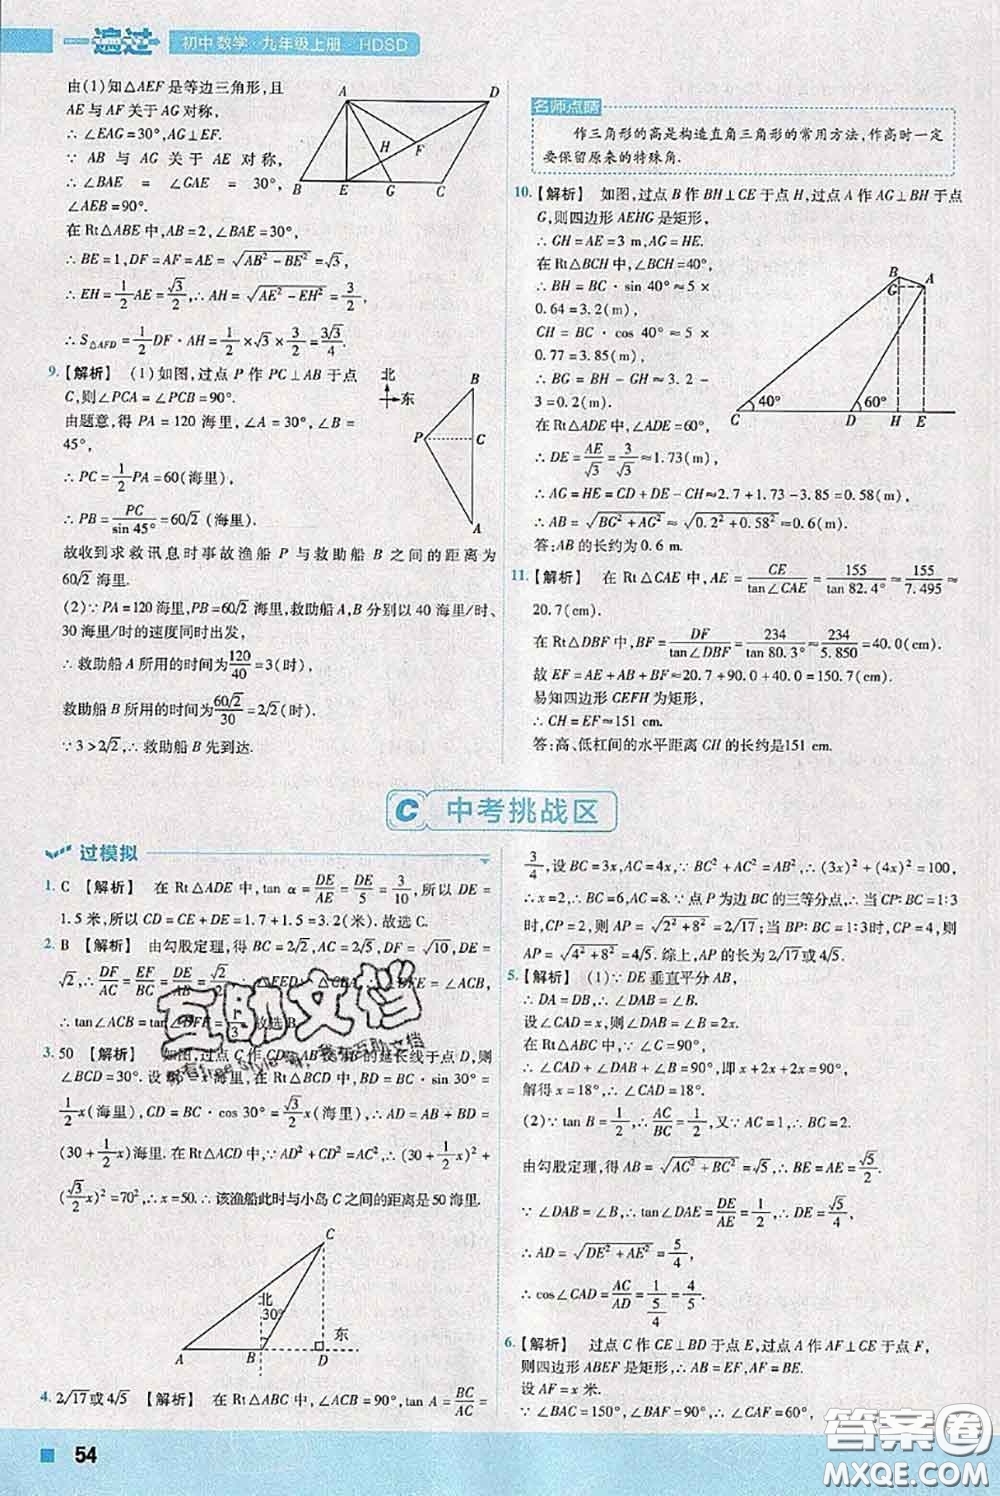 一遍过 初中数学·九年级上册 HDSD
由(1)知△AEF是等边三角形,且
AE与AF关于AG对称,
∴∠EAG=30°,AG⊥EF.
∵AB与AG关于AE对称,
∴∠BAE=∠GAE=30°,
∠AEB=90°.
在Rt△ABE中,AB=2,∠BAE=30°,
∴BE=1,DF=AF=AE=√(AB²-BE²)=√3,
∴EH=1/2AE=√3/2,∴AH=√(AE²-EH²)=3/2,
∴S△AFD=1/2DF·AH=1/2×√3×3/2=3√3/4.
A D H F B E G C
9.【解析】 (1)如图,过点P作PC⊥AB于点
C,则∠PCA=∠PCB=90°.
由题意,得PA=120海里,∠A=30°,∠B=
45°,
∴PC=1/2PA=60(海里),
∴PB=PC/sin 45°=60√2(海里).
北 东 B P C A
故收到求救讯息时事故渔船P与救助船B之间的距离为
60√2海里.
(2)∵PA=120海里,PB=60√2海里,救助船A,B分别以40海里/时、
30海里/时的速度同时出发,
∴救助船A所用的时间为120/40=3(时),
救助船B所用的时间为60√2/30=2√2(时).
∵3>2√2,∴救助船B先到达.
名师点睛
作三角形的高是构造直角三角形的常用方法,作高时一定
要保留原来的特殊角.
10.【解析】 如图,过点B作BH⊥CE于点H,过点A作AG⊥BH于点
G,则四边形AEHG是矩形,
∴GH=AE=3 m,AG=HE.
在Rt△BCH中,∠BCH=40°,
∴BH=BC·sin 40°≈5×
0.64=3.2(m),
CH=BC·cos 40°≈5×
0.77=3.85(m),
∴BG=BH-GH=3.2-
3=0.2(m).
在Rt△ADE中,∠ADE=60°,
∴DE=AE/√3=3/√3≈1.73(m),
∴AG=HE=CD+DE-CH≈2.7+1.73-3.85=0.58(m),
∴AB=√(BG²+AG²)≈√(0.2²+0.58²)≈0.6(m).
答:AB的长约为0.6 m.
B A G 40° 60° C D H E
11.【解析】 在Rt△CAE中,AE=CE/tan∠CAE=155/tan 82.4°≈155/7.495≈
20.7(cm),
在Rt△DBF中,BF=DF/tan∠DBF=234/tan 80.3°≈234/5.850=40.0(cm),
故EF=AE+AB+BF≈20.7+90.0+40.0=150.7(cm).
易知四边形CEFH为矩形,
∴CH=EF≈151 cm.
答:高、低杠间的水平距离CH的长约是151 cm.
C 中考挑战区
过模拟
1. C 【解析】 在Rt△ADE中,tan α=DE/AE=DE/5=3/10,所以DE=
1.5米,所以CD=CE+DE=1.7+1.5=3.2(米).故选C.
2. B 【解析】 由勾股定理,得BC=2√2,AC=2√5,DF=√10,DE=
√2,∴DF/AC=EF/BC=DE/AB=√2/2,
∠ACB,
∴tan∠ACB=tan∠DFE=1/3.故选B.
3. 50 【解析】 如图,过点C作CD⊥AB交AB的延长线于点D,则
∠BCD=30°.设BC=x海里,在Rt△BCD中,BD=BC·sin 30°=
1/2x(海里),CD=BC·cos 30°=√3/2x(海里),∴AD=AB+BD=
(30+1/2x)海里.在Rt△ACD中,AD²+CD²=AC²,∴(30+1/2x)²+
(√3/2x)²=70²,∴x=50.∴该渔船此时与小岛C之间的距离是50海里.
C 北 30° 东 A B D
4. 2√17或4√5 【解析】 在Rt△ABC中,∠ACB=90°,tan A=BC/AC=
3/4,设BC=3x,AC=4x,∵BC²+AC²=AB²,∴(3x)²+(4x)²=100,
∴x=2,∴BC=6,AC=8.∵点P为边BC的三等分点,∴当CP∶BC=1∶3
时,CP=2,AP=√(2²+8²)=2√17;当BP∶BC=1∶3时,CP=4,则
AP=√(4²+8²)=4√5.综上,AP的长为2√17或4√5.
5.【解析】 (1)∵DE垂直平分AB,
∴DA=DB,∴∠DAB=∠B.
设∠CAD=x,则∠DAB=∠B=2x.
在Rt△ABC中,∵∠C=90°,
∴∠CAD+∠DAB+∠B=90°,即x+2x+2x=90°,
解得x=18°,∴∠CAD=18°.
(2)∵tan B=1/2,∴AC/BC=1/2,又∵AC=1,∴BC=2.
由勾股定理,得AB=√(AC²+BC²)=√5,∴BE=AE=√5/2.
∵∠DAB=∠B,∴tan∠DAE=DE/AE=1/2,∴DE=√5/4,
∴AD=√(DE²+AE²)=5/4,
∴cos∠CAD=AC/AD=1/(5/4)=4/5.
6.【解析】 过点C作CE⊥BD于点E,过点A作AF⊥CE于点F,
则四边形ABEF是矩形,∴AF=BE.
设AF=x米.
∵∠BAC=150°,∠BAF=90°,∴∠CAF=60°,
54
互助文档
答案圈
MXQE.COM